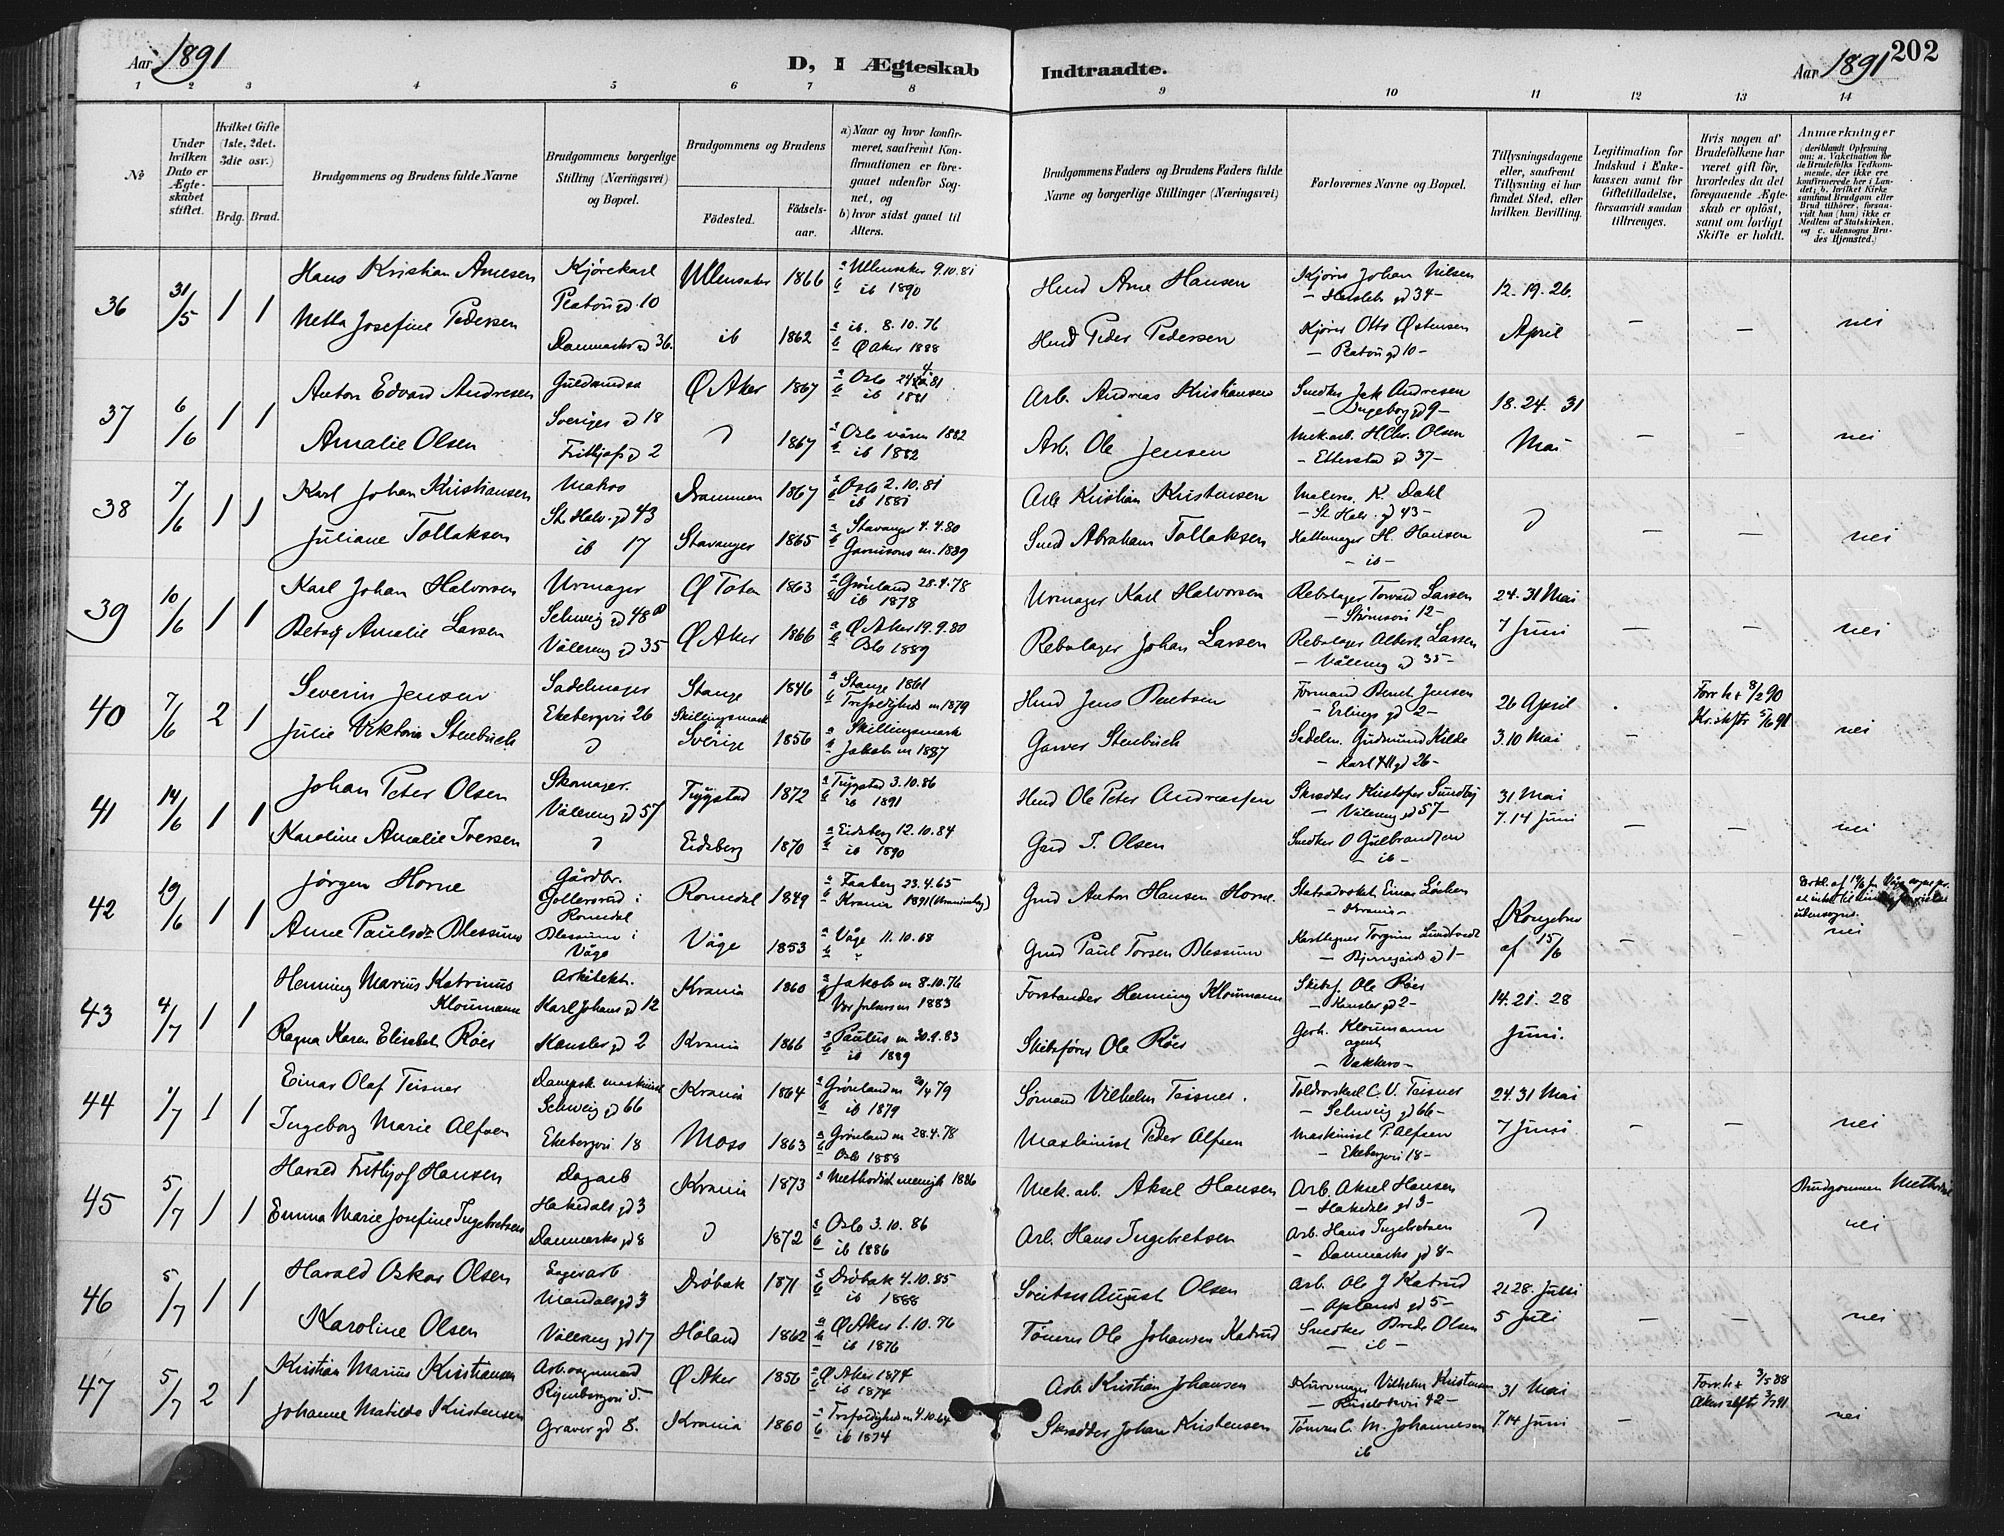 Aar 1891
D, I Ægteskab Indtraadte.
Aar 1891 202
1 2 3 4 5 6 7 8 9 10 11 12 13 14
No
Under hvilken Dato er Ægteskabet stiftet.
Hvilket Gifte (1ste, 2det. 3die osv.)
Brdg. Brud.
Brudgommens og Brudens fulde Navne
Brudgommens borgerlige Stilling (Næringsvei) og Bopæl.
Brudgommens og Brudens
Fødested.
Fødselsaar.
a) Naar og hvor konfirmeret, saafremt Konfirmationen er foregaaet udenfor Sognet, og
b) hvor sidst gaaet til Alters.
Brudgommens Faders og Brudens Faders fulde Navne og borgerlige Stillinger (Næringsvei)
Forlovernes Navne og Bopæl.
Tillysningsdagene eller, saafremt Tillysning ei har fundet Sted, efter hvilken Bevilling.
Legitimation for Indskud i Enkekassen samt for Giftetilladelse, forsaavidt saadan tiltrænges.
Hvis nogen af Brudefolkene har været gift før, hvorledes da det foregaaende Ægteskab er opløst, samt om lovligt Skifte er holdt.
Anmærkninger (deriblandt Oplysning om: a. Vaccination for de Brudefolks Vedkommende, der ikke ere konfirmerede her i Landet; b. hvilket Kirkesamfund Brudgom eller Brud tilhører, forsaavidt han (hun) ikke er Medlem af Statskirken, og c. udensogns Brudes Hjemsted.)
36 31/5 1 1 Hans Kristian Arnesen Kjørekarl Platous gd 10 Ullensaker 1866 a Ullensaker 9.10.81 b ib 1890 Hmd Arne Hansen Kjører Johan Nilsen – Herslebs gd 34 – 12. 19. 26. April – – nei
Netta Josefine Pedersen Danmarks gd 36. ib 1862 a ib. 8.10.76 b Ø Aker 1888 Hmd Peder Pedersen Kjører Otto Østensen – Platous gd 10 –
37 6/6 1 1 Anton Edvard Andresen Guldmedsv Sveriges gd 18 Ø Aker 1867 a Oslo 81 b ib 1881 Arb. Andreas Kristiansen Snedker Jak Andresen – Ingeborg gd 9 – 18. 24. 31 Mai – – nei
Amalie Olsen Frithjofs gd 2 1867 a Oslo våren 1882 b ib 1882 Arb. Ole Jensen Mek. arb. H Chr. Olsen – Etterstad gd 37 –
38 7/6 1 1 Karl Johan Kristiansen Matros St. Halv. gd 43 Drammen 1867 a Oslo 2.10.81 b ib 1881 Arb Kristian Kristensen Malersv. K. Dahl – St Halv. gd 43 – – – nei
Juliane Tollaksen ib 17 Stavanger 1865 a Stavanger 4.4.80 b Garnisons m. 1889 Smed Abraham Tollaksen Hattemager H. Hansen – ib –
39 10/6 1 1 Karl Johan Halvorsen Urmager Schweig gd 48 Ø Toten 1863 a Grønland 28.4.78 b ib 1878 Urmager Karl Halvorsen Rebslager Torvald Larsen – Strømsvei 12 – 24. 31 Mai 7 Juni – – nei
Betsy Amalie Larsen Vålereng gd 35 Ø Aker 1866 a Ø Aker 19.9.80 b Oslo 1889 Rebslager Johan Larsen Rebslager Albert Larsen – Vålereng gd 35 –
40 7/6 2 1 Severin Jensen Sadelmager Ekebergvei 26 Stange 1846 a Stange 1861 b Trefoldigheds m 1879 Hmd Jens Bentsen Formand Bent Jensen – Erlings gd 2 – 26 April 3. 10 Mai – Forr. h + 8/2 90 nei
Julie Viktoria Stenbuch Skillingsmark Sverige 1856 a Skillingsmark b Jakob m 1887 Garver Stenbuch Sadelm. Gudmund Kilde – Karl XII gd 26 –
41 14/6 1 1 Johan Peter Olsen Skomager. Vålereng gd 57 Trygstad 1872 a Trygstad 3.10.86 b ib 1891 Hmd Ole Peter Andreassen Skrædder Kristofer Sundby – Vålereng gd 57 – 31 Mai 7. 14 Juni – – nei
Karoline Amalie Iversen Eidsberg 1870 a Eidsberg 12.10.84 b ib 1890 Gmd I. Olsen Snedker O Gulbrandsen – ib –
42 19/6 1 1 Jørgen Horne Gårdbr. Gollersrud i Romedal Romedal 1849 a Faaberg 23.4.65 b Krania 1891 Gmd Anton Hansen Horne. Statsadvokat Einar Løchen – Krania – Kongebr af 15/6 – – udensogns. nei
Anne Paulsdr Blessum Blessum i Våge Våge 1853 a Våge 11.10.68 b " Gmd Paul Torsen Blessum Karttegner Torgrim Lundtvedt – Bjerregårds gd 1 –
43 4/7 1 1 Henning Marius Katrinus Kloumann Arkitekt. Karl Johans gd 12 Krania 1860 a Jakob m 8.10.76 Vor Frelsers m 1883 Forstander Henning Kloumann Skibsf. Ole Røer – Kansler gd 2 – 14. 21. 28 Juni.
Ragna Karen Elisabet Røer Kansler gd 2 Krania 1866 a Paulus m 30.9.83 b ib 1889 Skibsfører Ole Røer Gerh. Kloumann agent – Vækkerø –
44 4/7 1 1 Einar Olaf Teisner Dampsk. maskinist Schweig gd 66 Krania 1864 a Grønland m 20/4 79 b ib 1879 Sømand Vilhelm Teisner. Toldroerskarl C. V. Teisner – Schweig gd 66 – 24. 31 Mai 7 Juni – – nei
Ingeborg Marie Alfsen Ekebergvei 18 Moss 1863 a Grønland m 28.4.78 b Oslo 1888 Maskinist Peder Alfsen Maskinist P. Alfsen – Ekebergvei 18 –
45 5/7 1 1 Harald Frithjof Hansen Dagarb Hakedals gd 3 Krania 1873 a Methodist menigh 1886 Mek. arb. Aksel Hansen Arb. Aksel Hansen – Hakedals gd 3 – Brudgommen Methodist nei
Emma Marie Josefine Ingebretsen Danmarks gd 8 1872 a Oslo 3.10.86 b ib 1886 Arb. Hans Ingebretsen Arb. Hans Ingebretsen – Danmarks gd 8 –
46 5/7 1 1 Harald Oskar Olsen Lagerarb Mandals gd 3 Drøbak 1871 a Drøbak 4.10.85 b ib 1888 August Olsen Arb. Ole J Katrud – Oplands gd 5 – 21. 28. Juni 5 Juli – – nei
Karoline Olsen Vålereng gd 17 Høland 1862 a Ø Aker 1.10.76 b ib 1876 Tømrer Ole Johansen Katrud Snedker Brede Olsen – ib –
47 5/7 2 1 Kristian Marius Kristiansen Arb. Ryenbergvei 5 Ø Aker 1856 a Ø Aker 1874 b ib 1874 Arb. Kristian Johansen Kurvmager Vilhelm Kristensen 42 – 31 Mai 7. 14 Juni – Forr. h + 3/5 88 nei
Johanne Matilde Kristensen Graver gd 8. Krania 1860 a Trefoldigheds m 4.10. b ib 1874 Skrædder Johan Kristensen Tømrer C. M. Johannesen ib